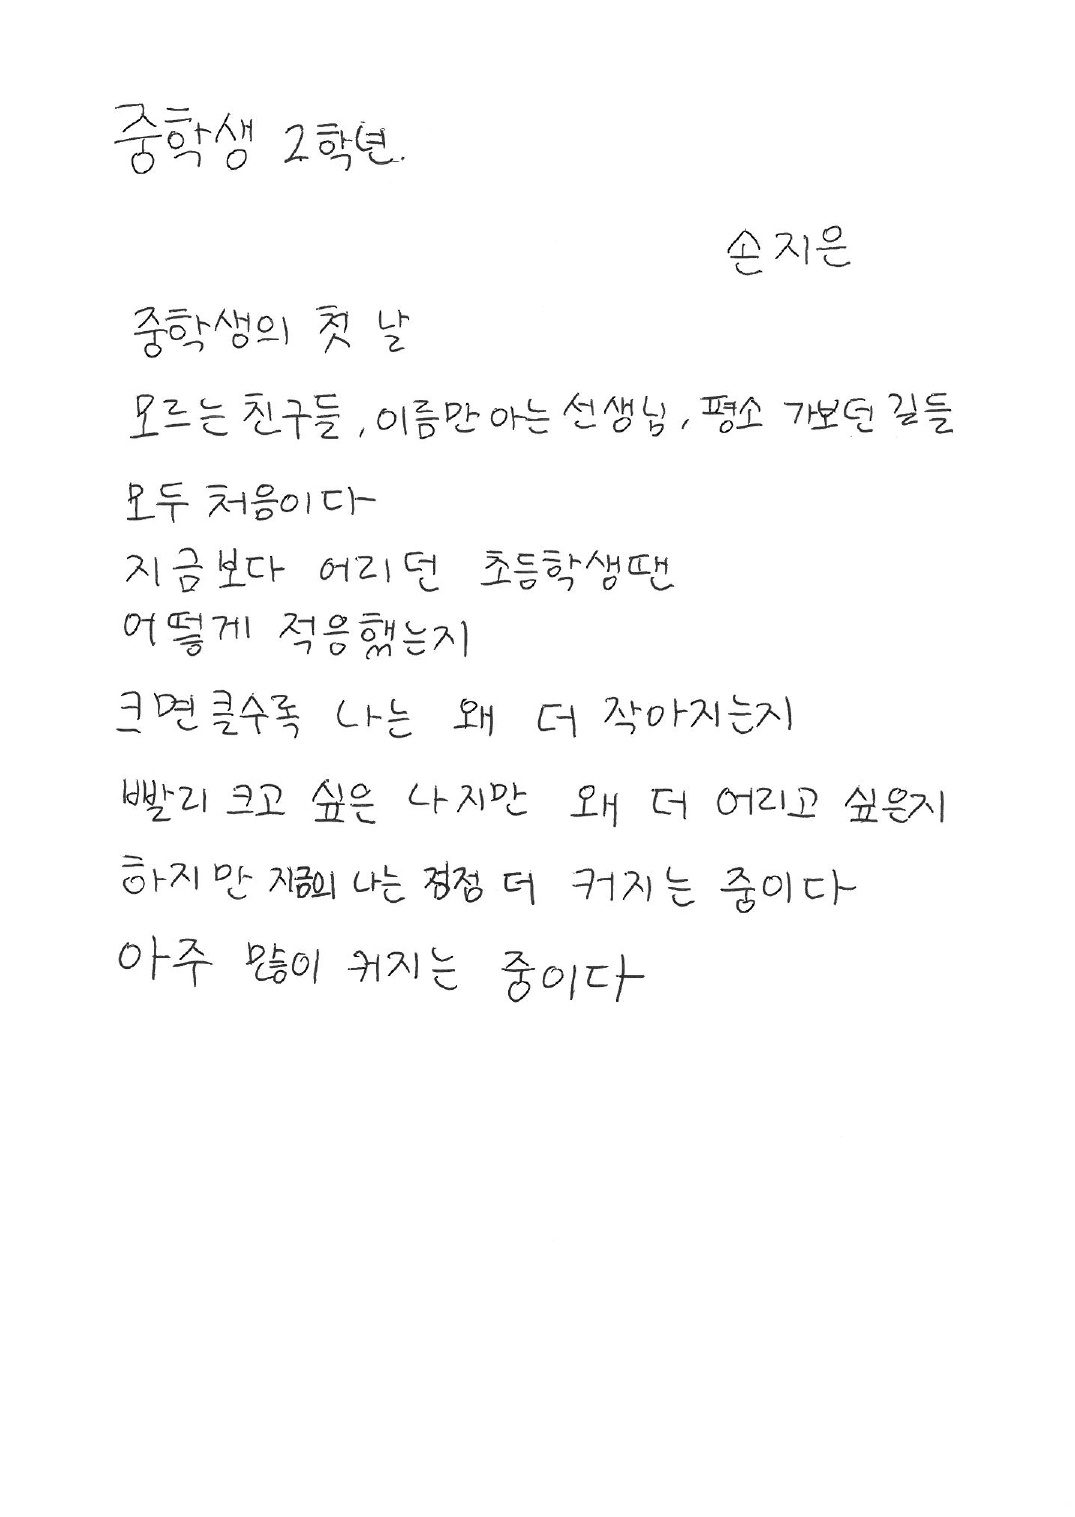 중학생 2학년.
손지은
중학생의 첫 날
모르는 친구들, 이름만 아는 선생님, 평소 가보던 길들
모두 처음이다
지금보다 어리던 초등학생땐
어떻게 적응했는지
크면클수록 나는 왜 더 작아지는지
빨리 크고 싶은 나지만 왜 더 어리고 싶은지
하지만 지금의 나는 점점 더 커지는 중이다
아주 많이 커지는 중이다